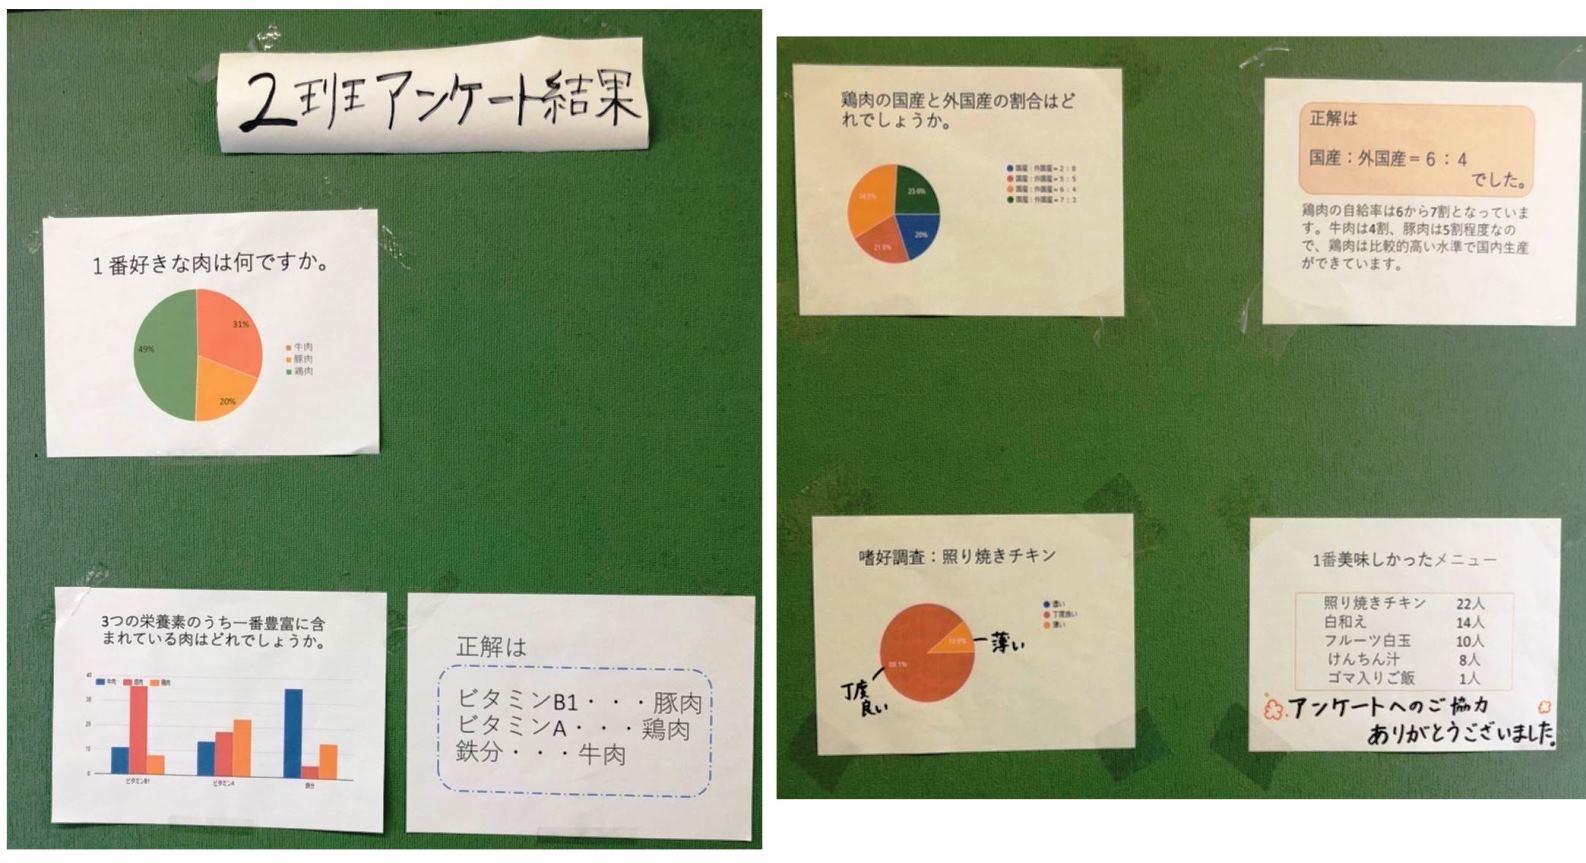 2班アンケート結果
1番好きな肉は何ですか。
31%
49%
20%
牛肉
豚肉
鶏肉
3つの栄養素のうち一番豊富に含
まれている肉はどれでしょうか。
牛肉 豚肉 鶏肉
40
30
20
10
0
ビタミンB1 ビタミンA 鉄分
正解は
ビタミンB1・・・豚肉
ビタミンA・・・鶏肉
鉄分・・・牛肉
鶏肉の国産と外国産の割合はど
れでしょうか。
国産：外国産＝2：8
国産：外国産＝5：5
国産：外国産＝6：4
国産：外国産＝7：3
23.6%
20%
21.8%
正解は
国産：外国産＝6：4
でした。
鶏肉の自給率は6から7割となっていま
す。牛肉は4割、豚肉は5割程度なの
で、鶏肉は比較的高い水準で国内生産
ができています。
嗜好調査：照り焼きチキン
濃い
丁度良い
薄い
10.9%
薄い
88.1%
丁度
良い
1番美味しかったメニュー
照り焼きチキン 22人
白和え 14人
フルーツ白玉 10人
けんちん汁 8人
ゴマ入りご飯 1人
アンケートへのご協力
ありがとうございました。